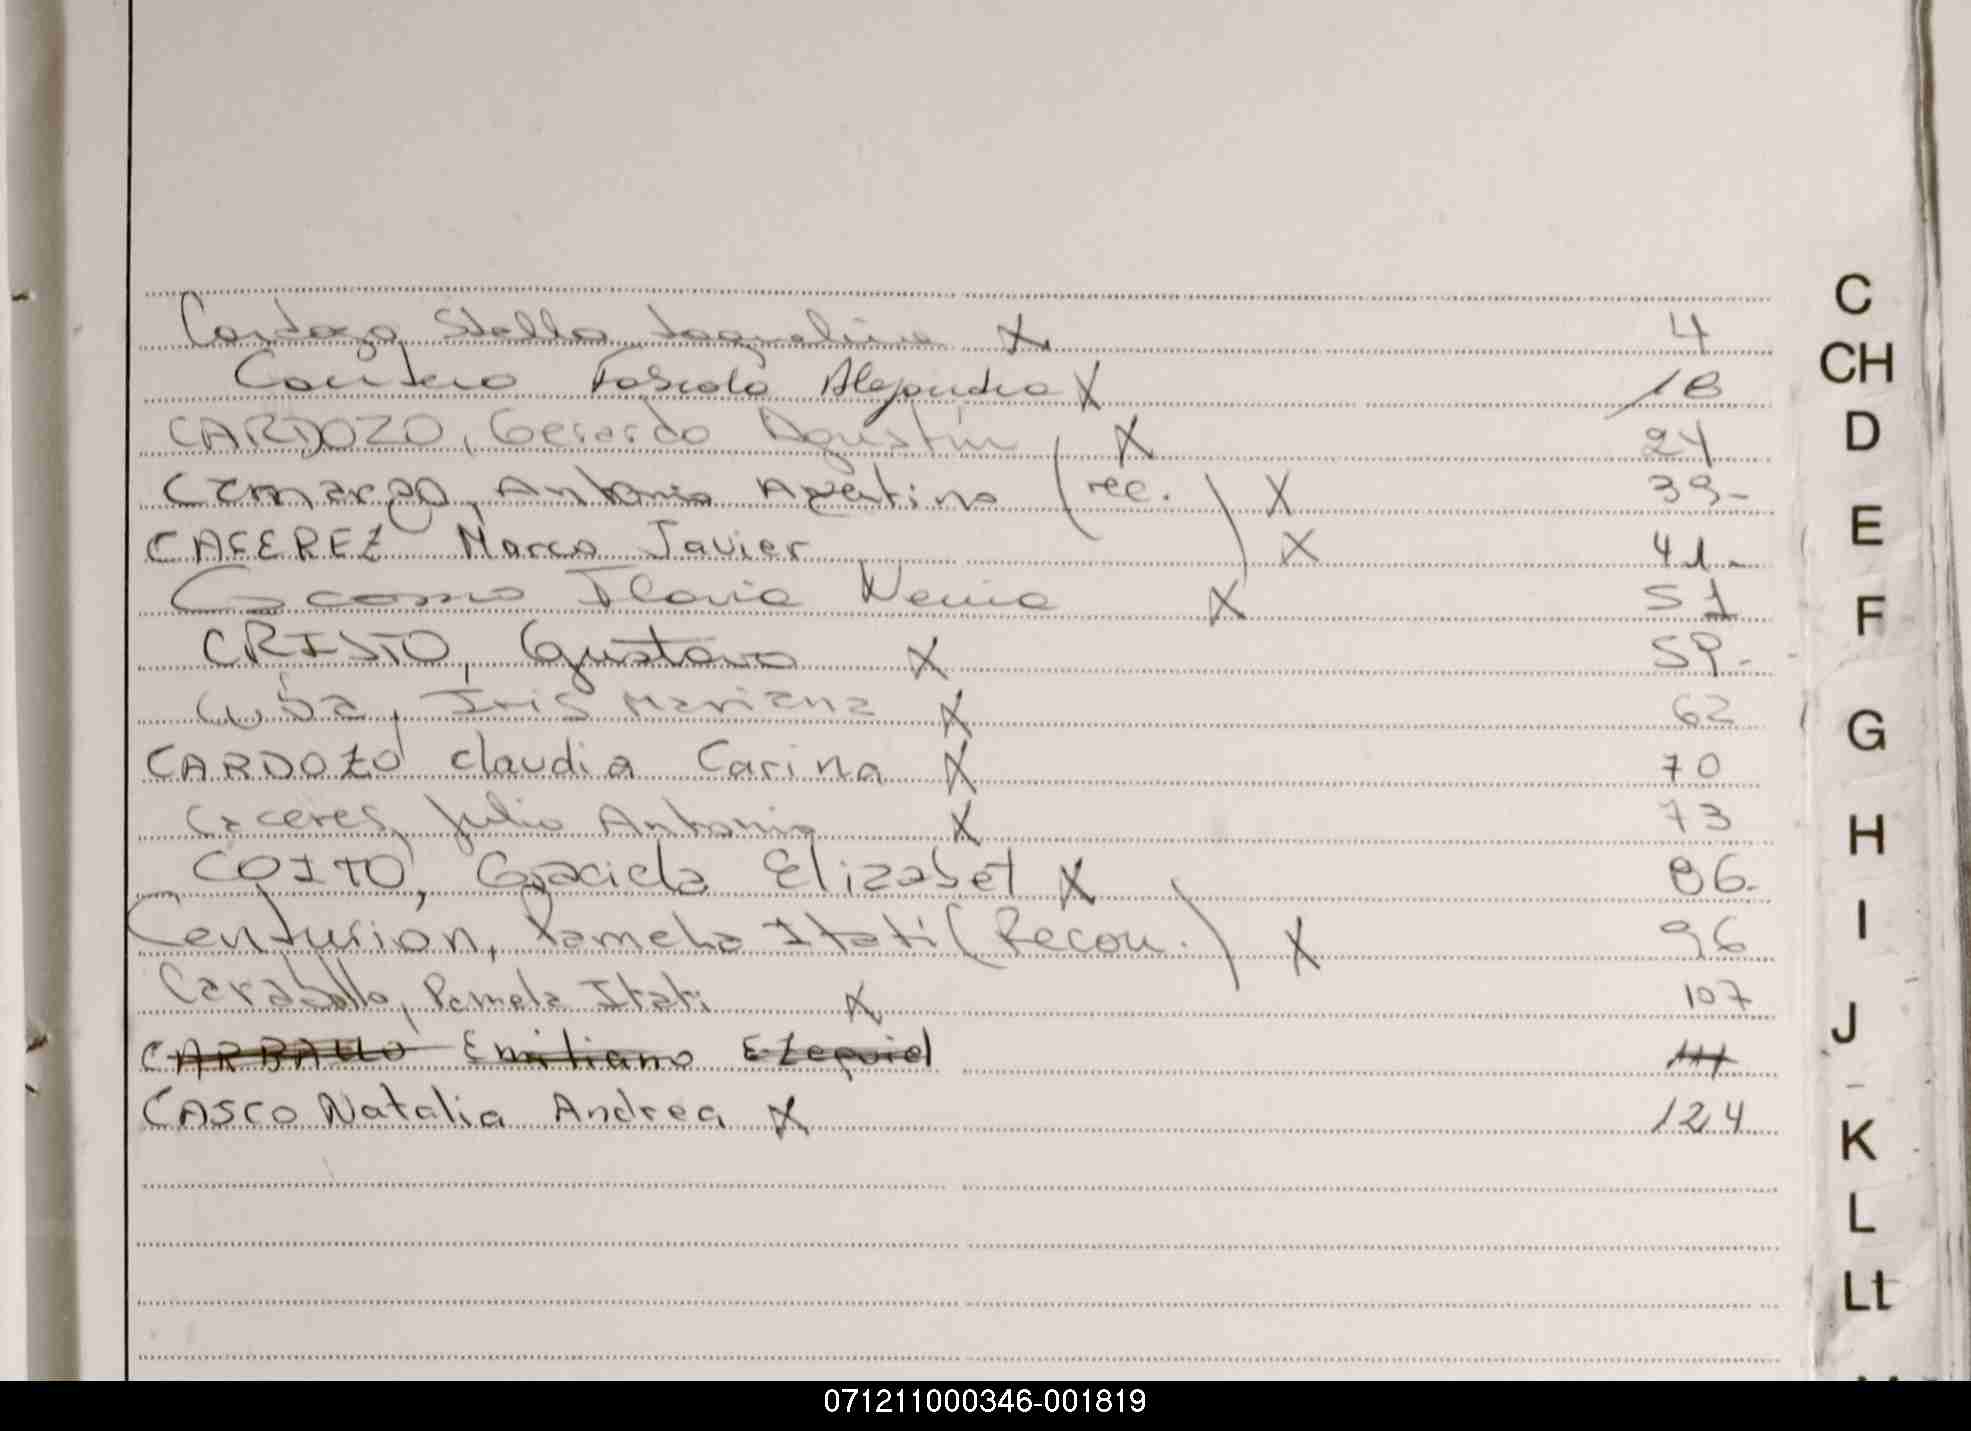 Cardozo Stella Jaquelina X 4
Cantero Fabiola Alejandra X 18
CARDOZO, Gerardo Agustín X 24
Camargo, Antonio Agustino (rec.) X 39-
CACEREZ Marco Javier X 41-
Flavia Xenia X 51
CRISTO, Gustavo X 59-
Cuba, Iris Mariana X 62
CARDOZO Claudia Carina X 70
Caceres, Julio Antonio X 73
COITO, Graciela Elizabet X 86-
Centurion, Pamela Itati (Recon.) X 96
Caraballo, Pamela Itati X 107
CARBALLO Emiliano Ezequiel 111
CASCO Natalia Andrea X 124
C
CH
D
E
F
G
H
I
J
K
L
LL
071211000346-001819